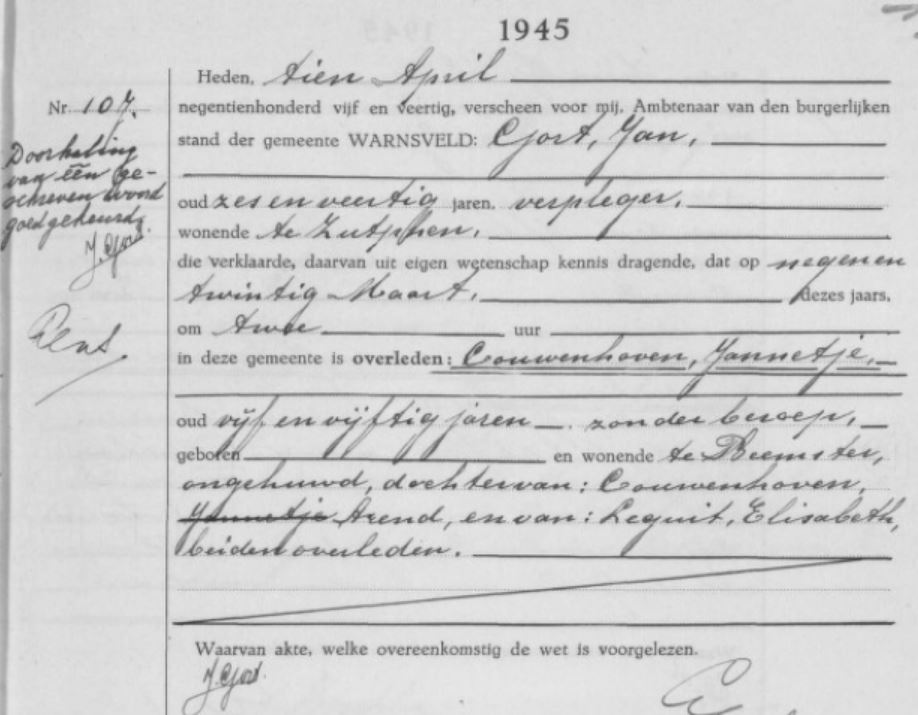 1945
Heden, tien April
Nr. 107.
negentienhonderd vijf en veertig, verscheen voor mij, Ambtenaar van den burgerlijken
stand der gemeente WARNSVELD: Gort, Jan,
Doorhaling
van één ge-
schreven woord
goedgekeurd.
J. Gort.
oud zes en veertig jaren, verpleger,
wonende te Zutphen,
die verklaarde, daarvan uit eigen wetenschap kennis dragende, dat op negen en
twintig Maart, dezes jaars,
om twee uur
in deze gemeente is overleden: Couwenhoven, Jannetje,
oud vijf en vijftig jaren zonder beroep,
geboren en wonende te Beemster,
ongehuwd, dochter van: Couwenhoven,
Jannetje Arend, en van: Lequit, Elisabeth,
beiden overleden.
Waarvan akte, welke overeenkomstig de wet is voorgelezen.
J. Gort.